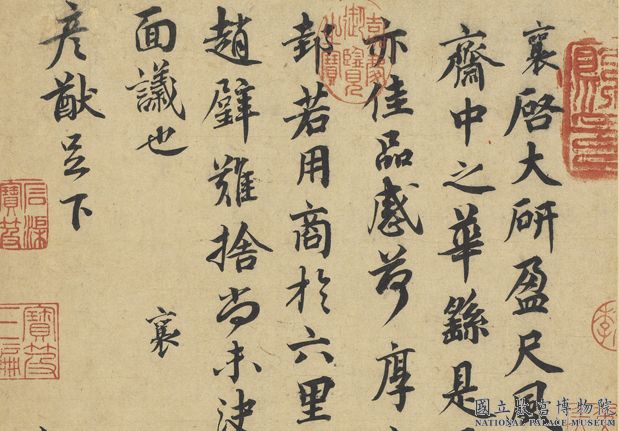 襄啓大研盈尺風
齋中之華繇是
亦佳品感荷厚
邦若用商於六里
趙璧難捨尚未決
面議也
襄
彥猷足下
嘉慶御覽之寶
寶笈三編
國立故宮博物院
NATIONAL PALACE MUSEUM